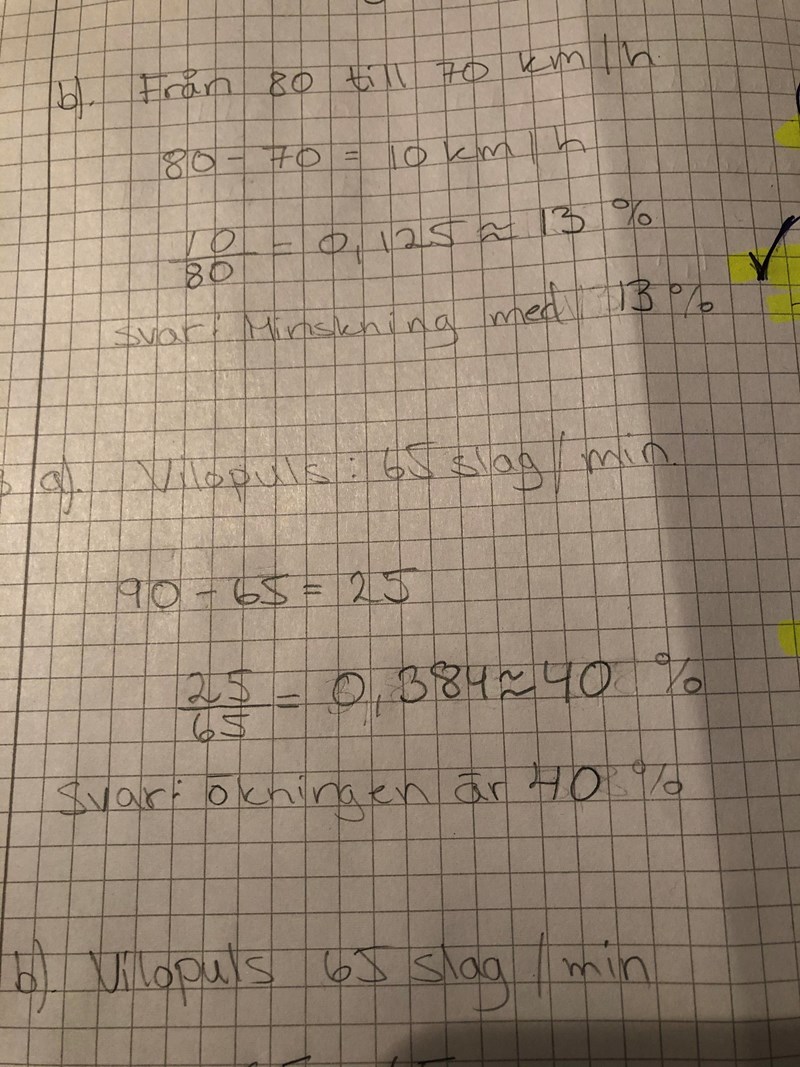 b). Från 80 till 70 km/h
80 - 70 = 10 km/h
10/80 = 0,125 ≈ 13 %
svar: Minskning med 13 %
a). Vilopuls: 65 slag/min.
90 - 65 = 25
25/65 = 0,384 ≈ 40 %
Svar: ökningen är 40 %
b). Vilopuls 65 slag/min